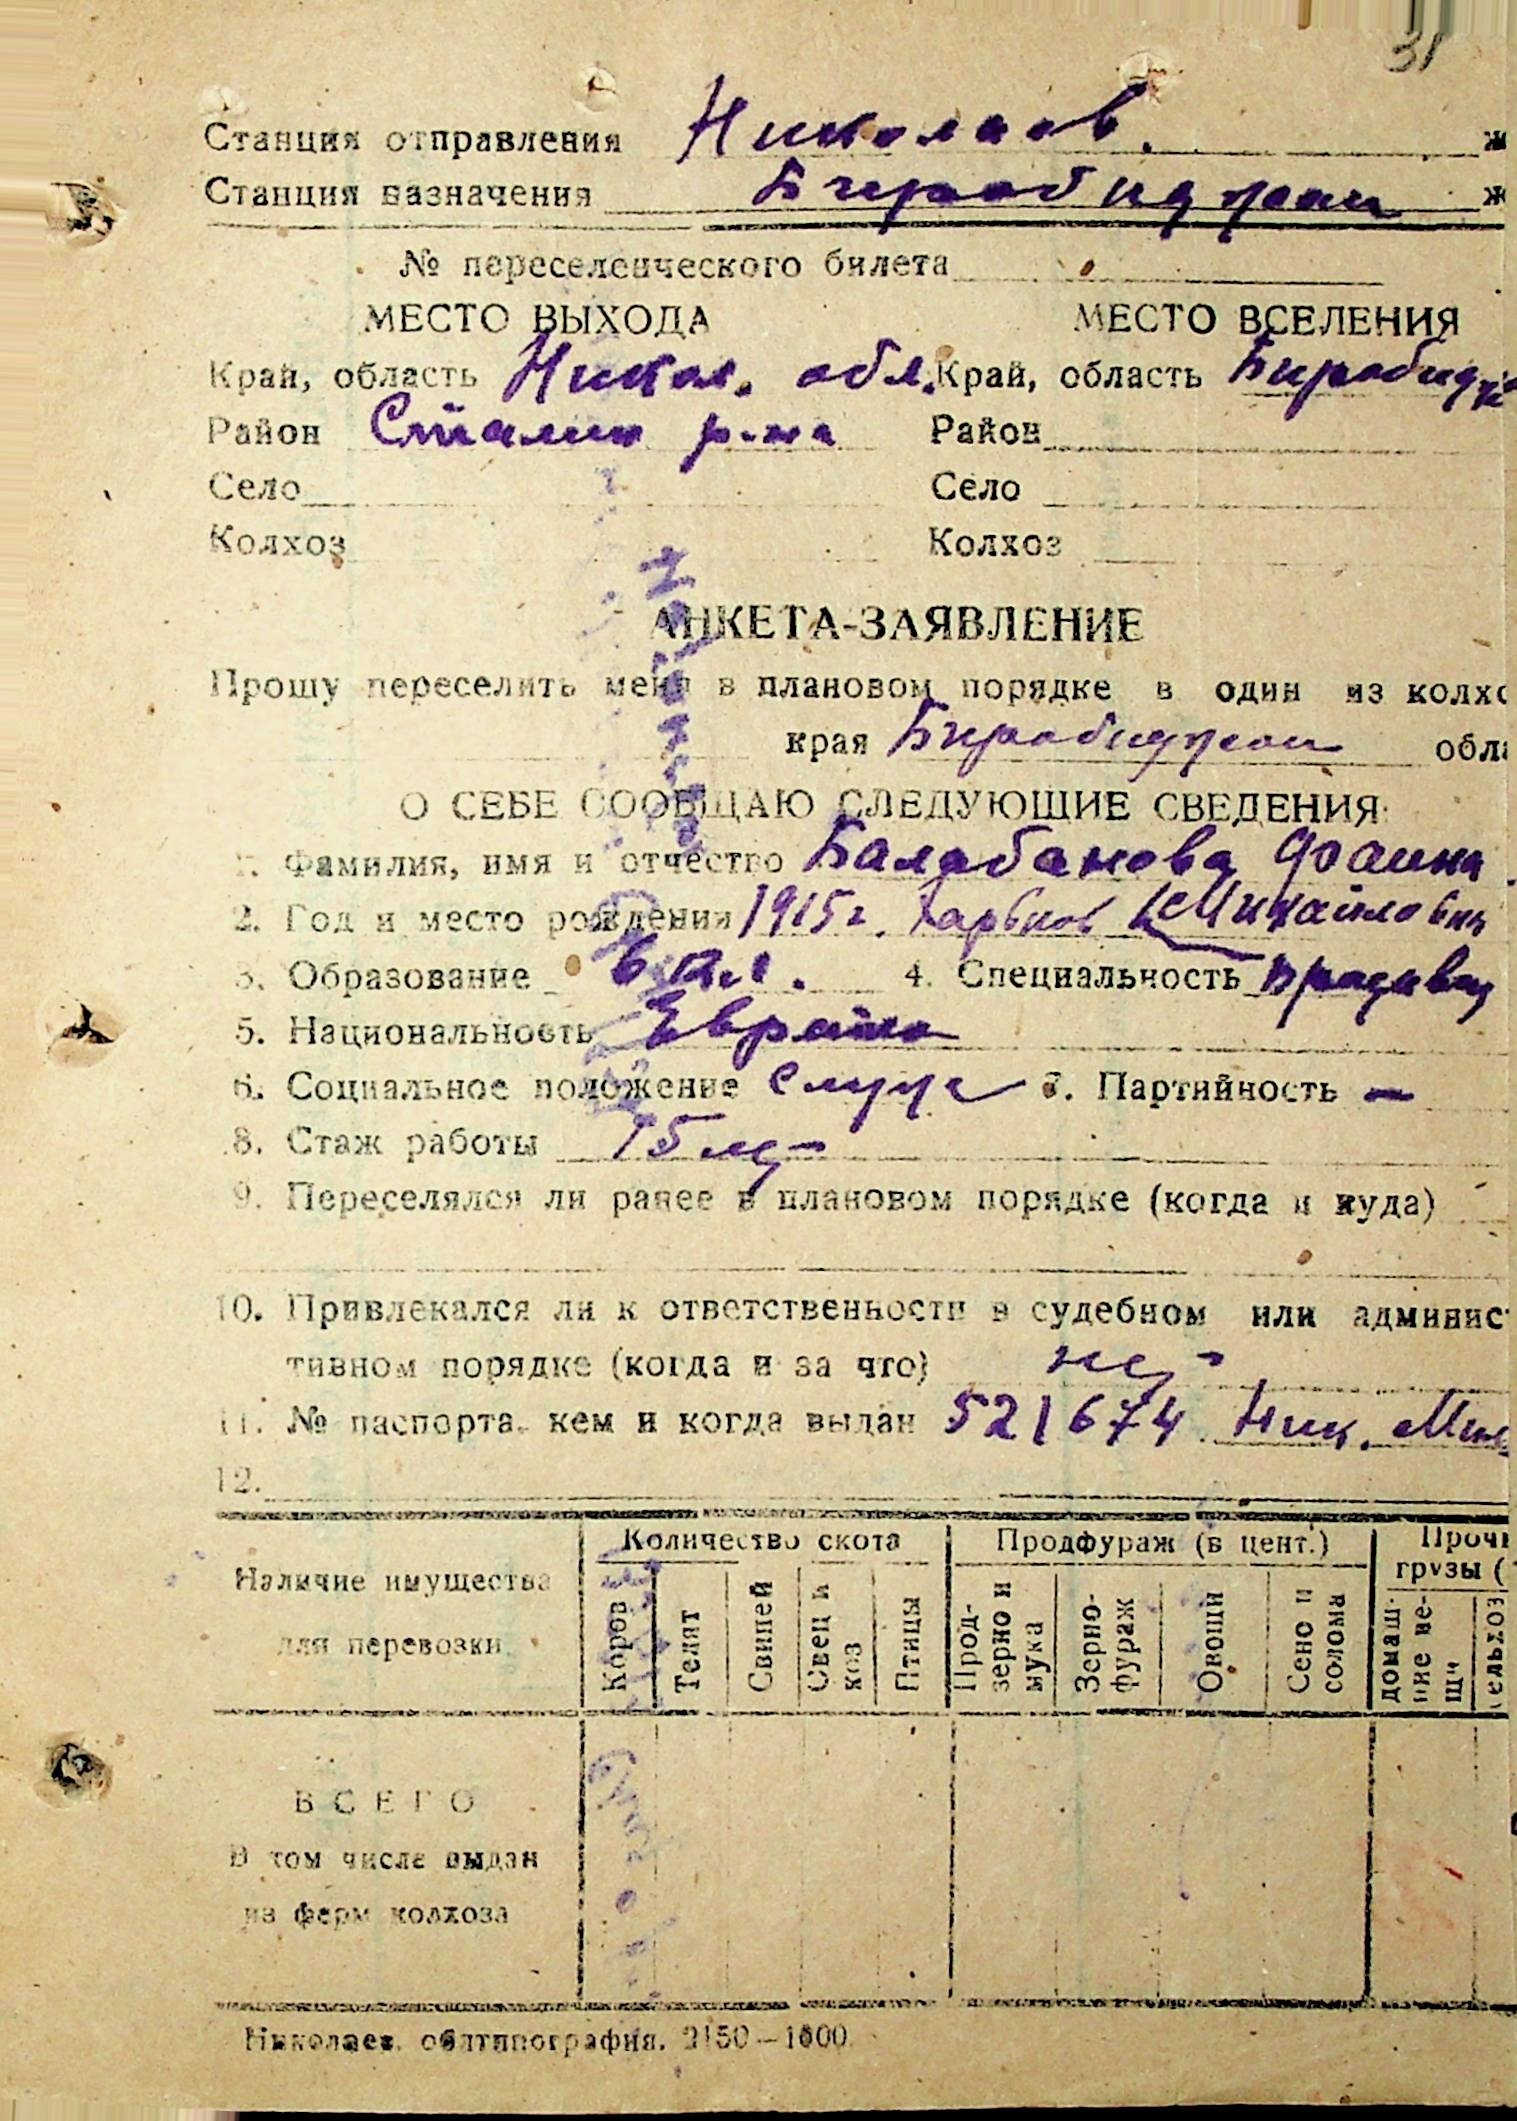 31
Станция отправления Николаев. ж
Станция назначения Биробиджан ж
№ переселенческого билета
МЕСТО ВЫХОДА МЕСТО ВСЕЛЕНИЯ
Край, область Никол. обл. Край, область Биробидж
Район Сталин р-на Район
Село Село
Колхоз Колхоз
АНКЕТА-ЗАЯВЛЕНИЕ
Прошу переселить меня в плановом порядке в один из колхо
края Биробиджан обла
О СЕБЕ СООБЩАЮ СЛЕДУЮЩИЕ СВЕДЕНИЯ:
1. Фамилия, имя и отчество Балабанова Фаина
2. Год и место рождения 1915 г. Харьков Михайловна
3. Образование 6 кл. 4. Специальность
5. Национальность Еврейка
6. Социальное положение служ 7. Партийность —
8. Стаж работы 15 лет
9. Переселялся ли ранее в плановом порядке (когда и куда)
10. Привлекался ли к ответственности в судебном или админист
тивном порядке (когда и за что) нет
11. № паспорта, кем и когда выдан 521674 Ник.
12.
Наличие имущества для перевозки
Количество скота Продфураж (в цент.) Прочи грузы (
Коров Телят Свиней Овец и коз Птицы Прод-зерно и мука Зерно-фураж Овощи Сено и солома домаш-ние ве-щи сельхоз
ВСЕГО
В том числе выдан
из ферм колхоза
Николаев. облтипография. 2150—1000